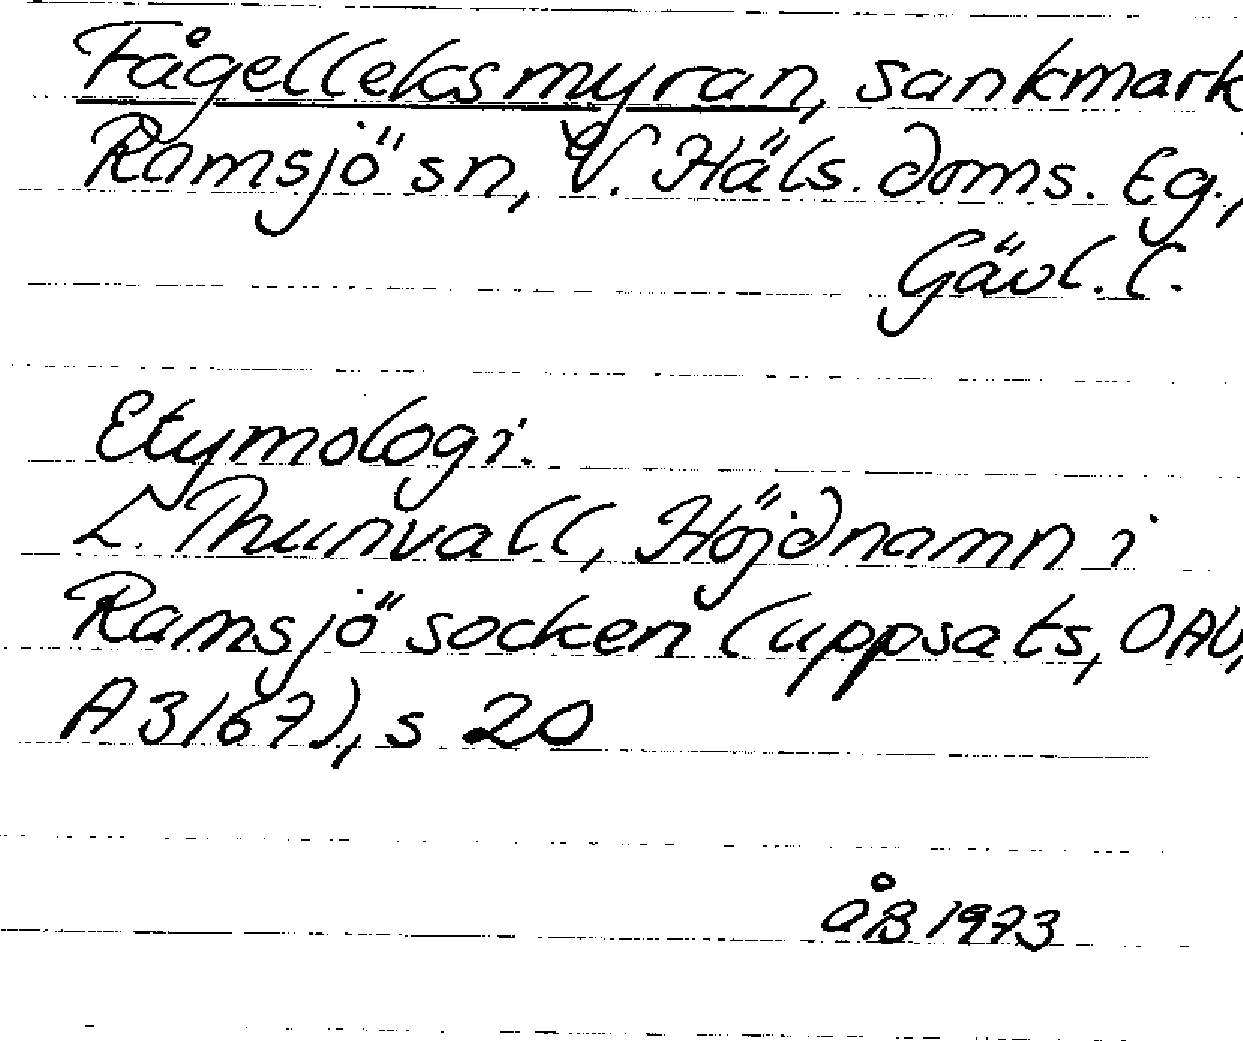 Fågelleksmyran, sankmark
Ramsjö sn, V. Häls. doms. Eg.,
Gävl. l.
Etymologi.
L. Thunvall, Höjdnamn i
Ramsjö socken (uppsats, OAU,
A 3167), s 20
ÅB 1973